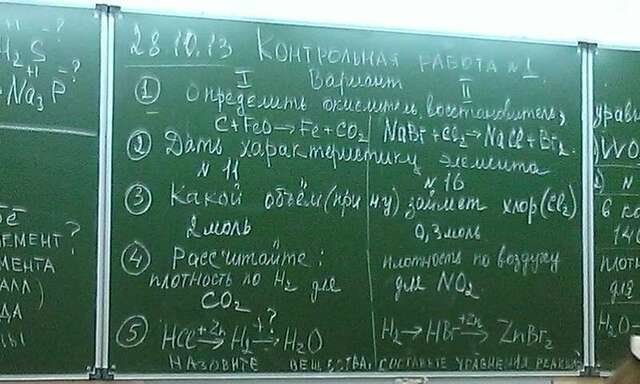 H₂S
+1 -?
Na₃P
28.10.13 Контрольная работа №1
I Вариант II
① Определить окислитель, восстановитель,
C+FeO→Fe+CO₂ NaBr+Cl₂→NaCl+Br₂.
② Дать характеристику элемента
N 11 N 16
③ Какой объём (при ну) займёт хлор (Cl₂)
2 моль 0,3 моль
④ Рассчитайте:
плотность по H₂ для плотность по воздуху
CO₂ для NO₂
⑤ HCl +Zn→ H₂ +?→ H₂O H₂→HBr +Zn→ ZnBr₂
Назовите вещества, составьте уравнения реакций
ЕМЕНТ?
МЕНТА
АЛЛ)
ДА
Ы
урав
WO
N
в к
плот
для
H₂O